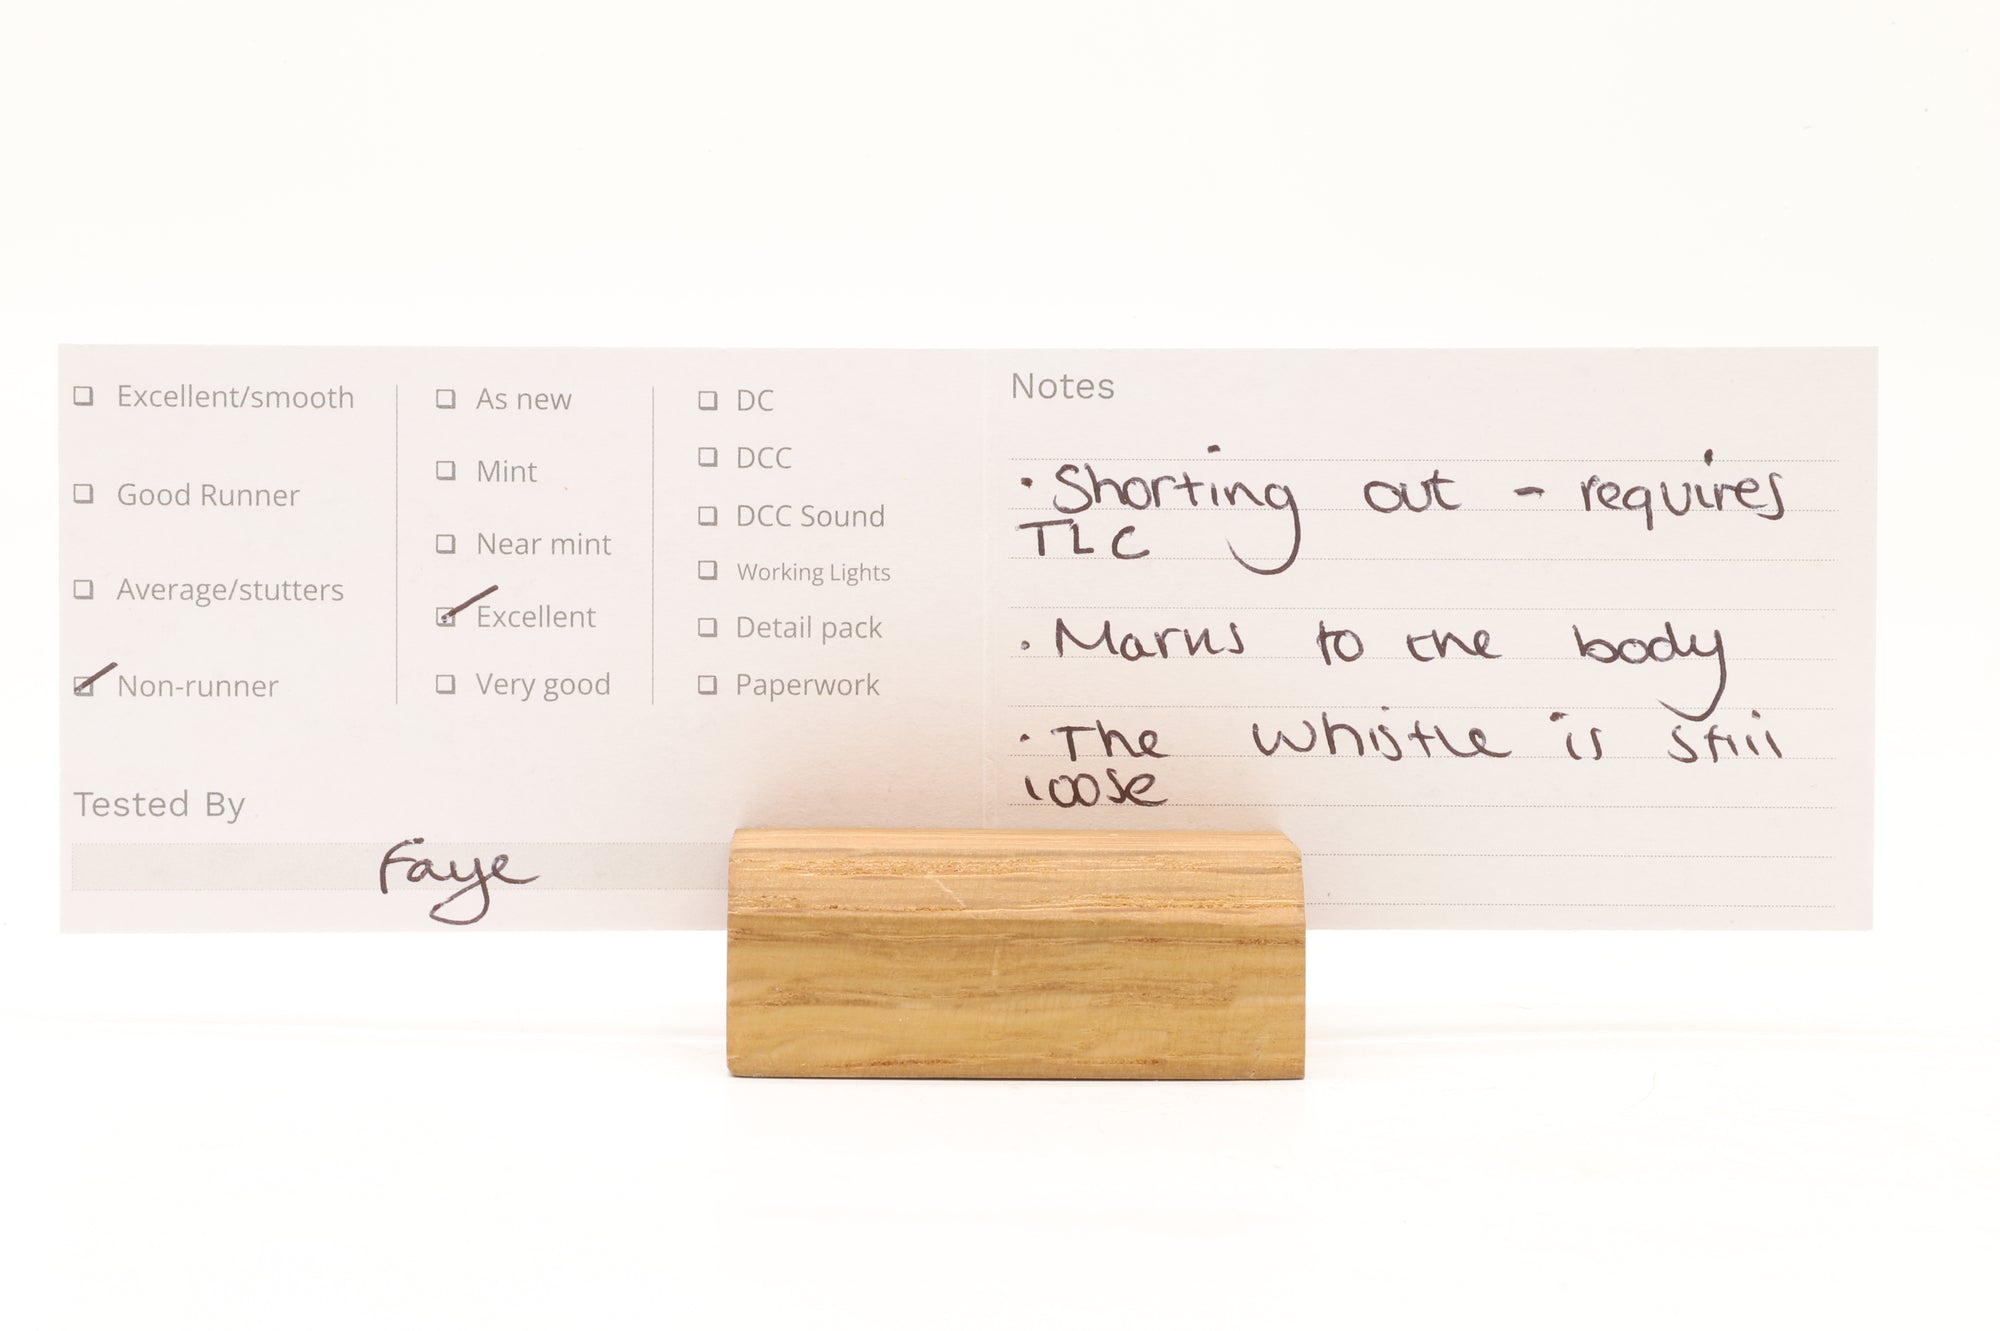 Excellent/smooth
Good Runner
Average/stutters
Non-runner
As new
Mint
Near mint
Excellent
Very good
DC
DCC
DCC Sound
Working Lights
Detail pack
Paperwork
Tested By
Faye
Notes
· Shorting out - requires
TLC
· Marks to the body
· The whistle is still
loose